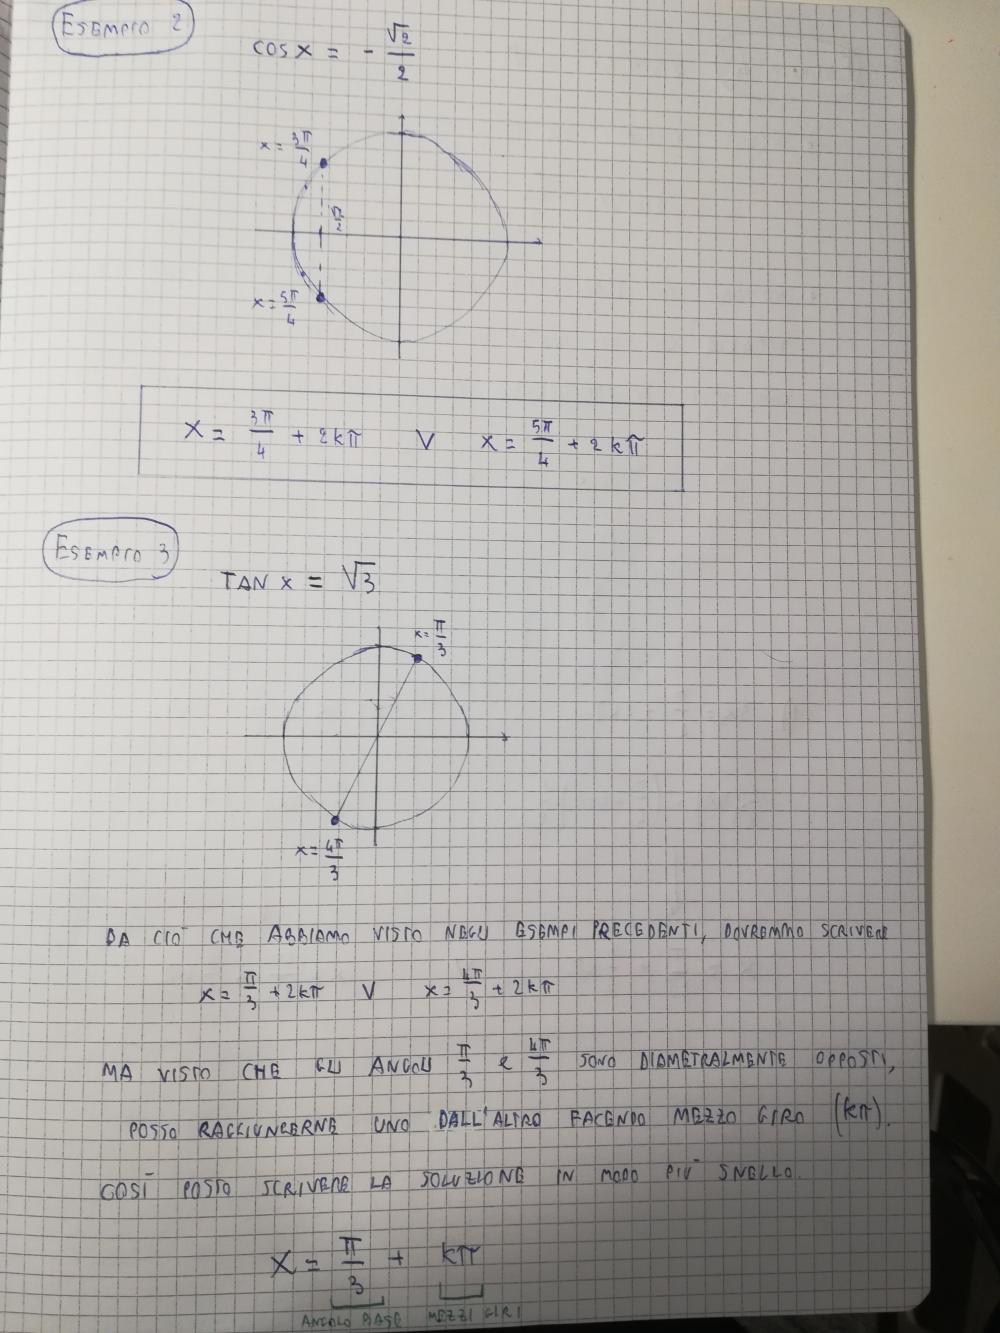 ESEMPIO 2
COS X = - √2/2
x = 3π/4
√2/2
x = 5π/4
X = 3π/4 + 2kπ V x = 5π/4 + 2kπ
ESEMPIO 3
TAN X = √3
x = π/3
x = 4π/3
DA CIÒ CHE ABBIAMO VISTO NEGLI ESEMPI PRECEDENTI, DOVREMMO SCRIVERE
x = π/3 + 2kπ V x = 4π/3 + 2kπ
MA VISTO CHE GLI ANGOLI π/3 e 4π/3 SONO DIAMETRALMENTE OPPOSTI,
POSSO RAGGIUNGERNE UNO DALL'ALTRO FACENDO MEZZO GIRO (kπ).
COSÌ POSSO SCRIVERE LA SOLUZIONE IN MODO PIÙ SNELLO.
X = π/3 + kπ
ANGOLO BASE MEZZI GIRI